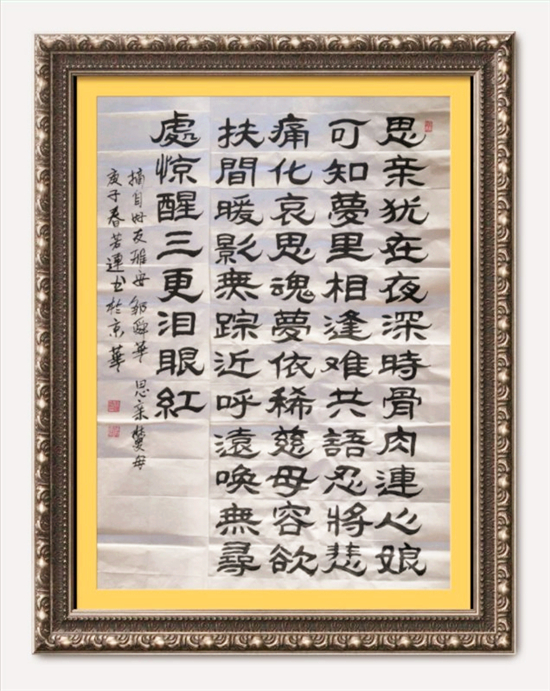 思亲犹在夜深時骨肉連心娘
可知夢里相逢难共語忍將悲
痛化哀思魂夢依稀慈母容欲
扶間暖影無踪近呼遠唤無尋
處惊醒三更泪眼紅
摘自好友雅安邹舜華 思亲夢母
庚子春若蓮书於京華